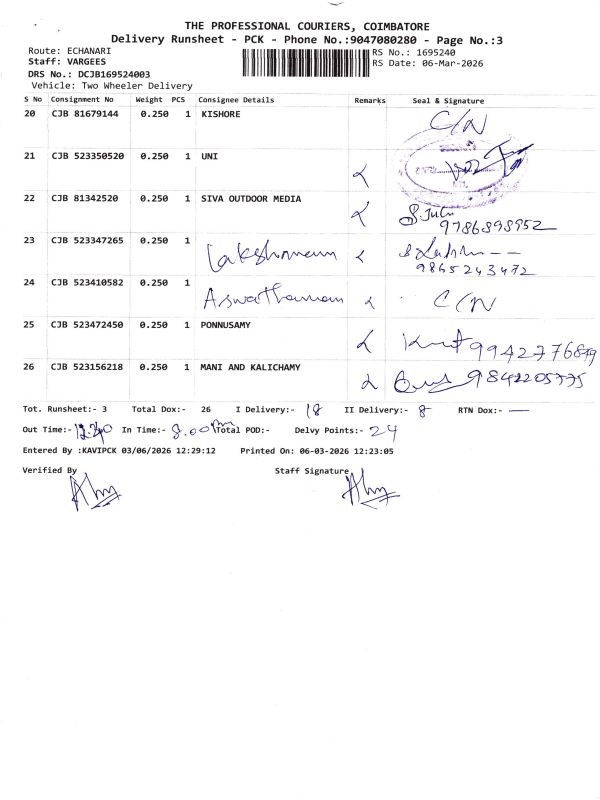 THE PROFESSIONAL COURIERS, COIMBATORE
Delivery Runsheet - PCK - Phone No.:9047080280 - Page No.:3
Route: ECHANARI
Staff: VARGEES
DRS No.: DCJB169524003
Vehicle: Two Wheeler Delivery
RS No.: 1695240
RS Date: 06-Mar-2026
S No Consignment No Weight PCS Consignee Details Remarks Seal & Signature
20 CJB 81679144 0.250 1 KISHORE C/N
21 CJB 523350520 0.250 1 UNI
22 CJB 81342520 0.250 1 SIVA OUTDOOR MEDIA
9786898952
23 CJB 523347265 0.250 1 Lakshmanan
9865243472
24 CJB 523410582 0.250 1 Aswathaman C/N
25 CJB 523472450 0.250 1 PONNUSAMY 9942776879
26 CJB 523156218 0.250 1 MANI AND KALICHAMY 9842205775
Tot. Runsheet:- 3 Total Dox:- 26 I Delivery:- 18 II Delivery:- 8 RTN Dox:- —
Out Time:- In Time:- 8.00 Pm Total POD:- Delvy Points:- 24
Entered By :KAVIPCK 03/06/2026 12:29:12 Printed On: 06-03-2026 12:23:05
Verified By Staff Signature